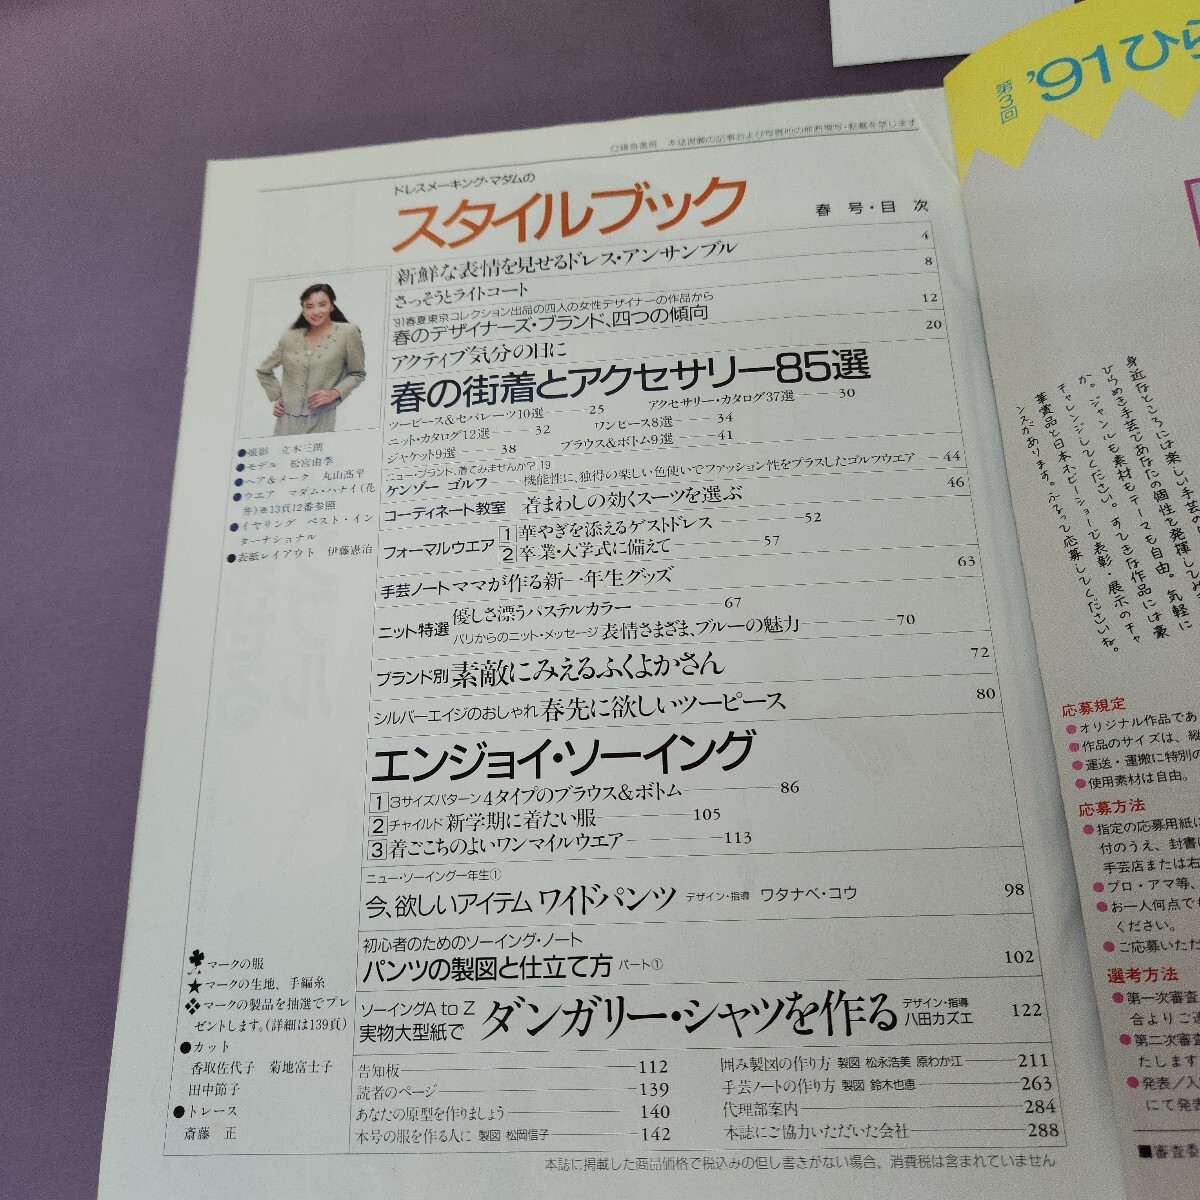 ©鎌倉書房　本誌掲載の記事および写真他の無断複写・転載を禁じます
ドレスメーキング・マダムの
スタイルブック
春 号・目 次
新鮮な表情を見せるドレス・アンサンブル 4
さっそうとライトコート 8
'91春夏東京コレクション出品の四人の女性デザイナーの作品から
春のデザイナーズ・ブランド、四つの傾向 12
アクティブ気分の日に 20
春の街着とアクセサリー85選
ツーピース&セパレーツ10選 25 アクセサリー・カタログ37選 30
ニット・カタログ12選 32 ワンピース8選 34
ジャケット9選 38 ブラウス&ボトム9選 41
ニュー・ブランド、着てみませんか? 19
ケンゾー ゴルフ 機能性に、独得の楽しい色使いでファッション性をプラスしたゴルフウエア 44
コーディネート教室 着まわしの効くスーツを選ぶ 46
フォーマルウエア 1 華やぎを添えるゲストドレス 52
2 卒業・入学式に備えて 57
手芸ノート ママが作る新一年生グッズ 63
ニット特選 優しさ漂うパステルカラー 67
パリからのニット・メッセージ 表情さまざま、ブルーの魅力 70
ブランド別 素敵にみえるふくよかさん 72
シルバーエイジのおしゃれ 春先に欲しいツーピース 80
エンジョイ・ソーイング
1 3サイズパターン 4タイプのブラウス&ボトム 86
2 チャイルド 新学期に着たい服 105
3 着ごこちのよいワンマイルウエア 113
ニュー・ソーイング一年生①
今、欲しいアイテム ワイドパンツ デザイン・指導 ワタナベ・コウ 98
初心者のためのソーイング・ノート
パンツの製図と仕立て方 パート① 102
ソーイングA to Z
実物大型紙で ダンガリー・シャツを作る デザイン・指導 八田カズエ 122
告知板 112
読者のページ 139
あなたの原型を作りましょう 140
本号の服を作る人に 製図 松岡信子 142
囲み製図の作り方 製図 松永浩美 原わか江 211
手芸ノートの作り方 製図 鈴木也恵 263
代理部案内 284
本誌にご協力いただいた会社 288
本誌に掲載した商品価格で税込みの但し書きがない場合、消費税は含まれていません
●撮影 立木三朗
●モデル 松宮由季
●ヘア&メーク 丸山高平
●ウエア マダム・ハナイ(花
井)※13頁12番参照
●イヤリング ベスト・イン
ターナショナル
●表紙レイアウト 伊藤憲治
♣マークの服
★マークの生地、手編糸
❖マークの製品を抽選でプレ
ゼントします。(詳細は139頁)
●カット
香取佐代子 菊地富士子
田中節子
●トレース
斎藤 正
第3回
'91ひら
身近なところには楽しい手芸の
ひらめき手芸であなたの個性を発揮してみ
か。ジャンルも素材もテーマも自由。気軽に
チャレンジしてください。すてきな作品には豪
華賞品と日本ホビーショーで表彰・展示のチャ
ンスがあります。ふるって応募してくださいね。
応募規定
●オリジナル作品であ
●作品のサイズは、縦
●運送・運搬に特別の
●使用素材は自由。
応募方法
●指定の応募用紙に
付のうえ、封書に
手芸店または右
●プロ・アマ等、
●お一人何点でも
ください。
●ご応募いただ
選考方法
●第一次審査
合よりご連
●第二次審査
たします
●発表/入
にて発表
■審査委